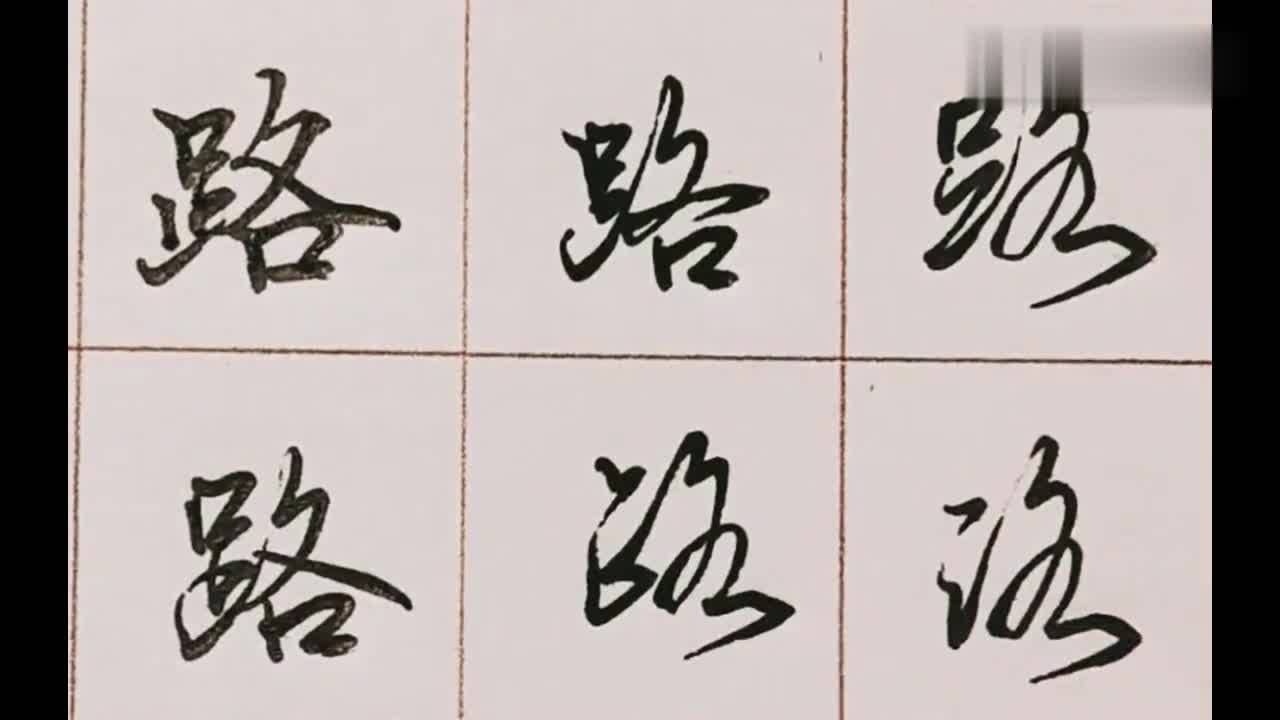 路 路 路
路 路 路